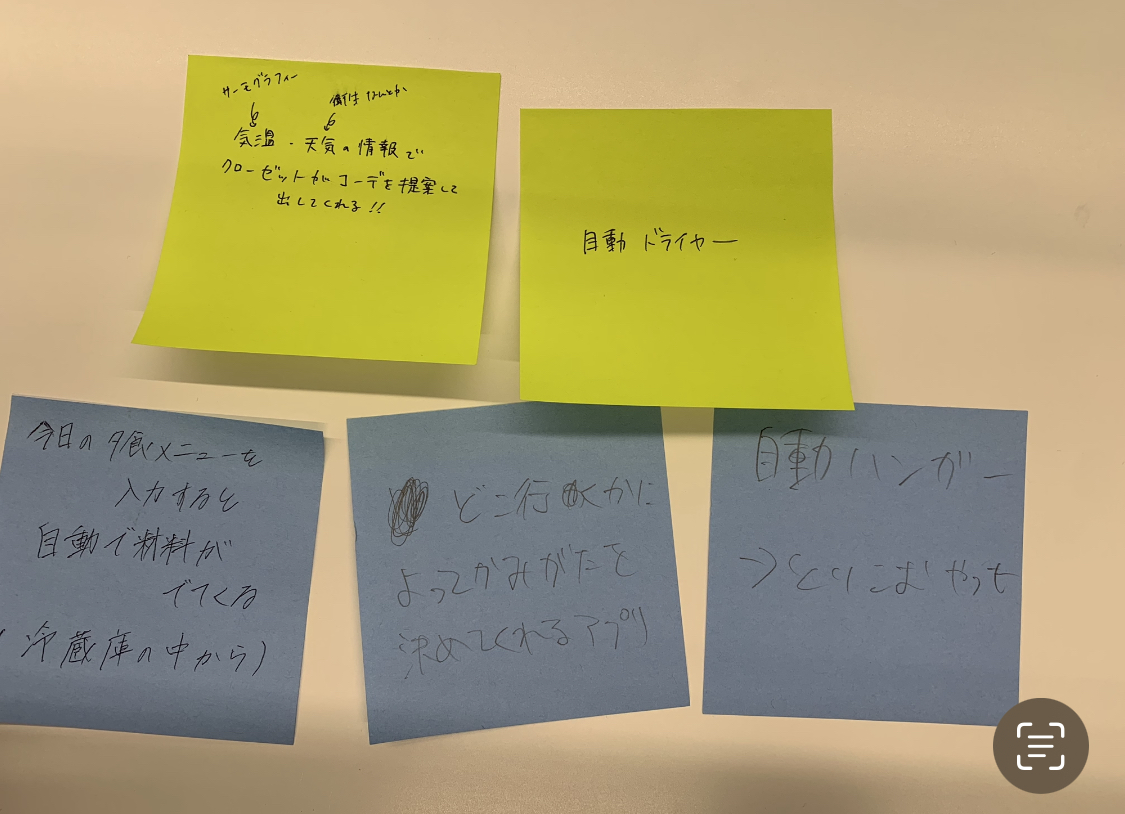 サーモグラフィー
なんとか
気温・天気の情報で
クローゼットがコーデを提案して
出してくれる!!
自動ドライヤー
今日の夕食メニューを
入力すると
自動で材料が
でてくる
(冷蔵庫の中から)
どこ行くかに
よってかみがたを
決めてくれるアプリ
自動ハンガー
→とりこみまで